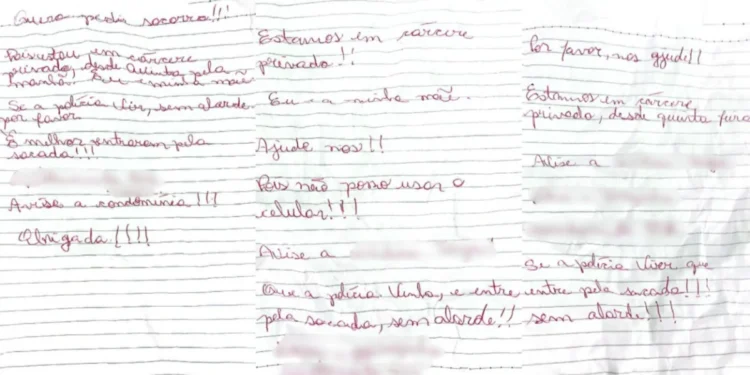 Quero pedir socorro!!!
Pois estou em cárcere
privado, desde quinta pela
manhã. Eu e minha mãe
Se a polícia vir, sem alarde
por favor
É melhor entrarem pela
sacada!!!
Avise a condomínia!!!
Obrigada!!!!
Estamos em cárcere
privado!!
Eu e a minha mãe.
Ajude nos!!
Pois não posso usar o
celular!!!
Avise a
Que a polícia venha, e entre
pela sacada, sem alarde!!
Por favor, nos ajude!!
Estamos em cárcere
privado, desde quinta feira
Avise a
Se a polícia vier que
entre pela sacada!!!
sem alarde!!!